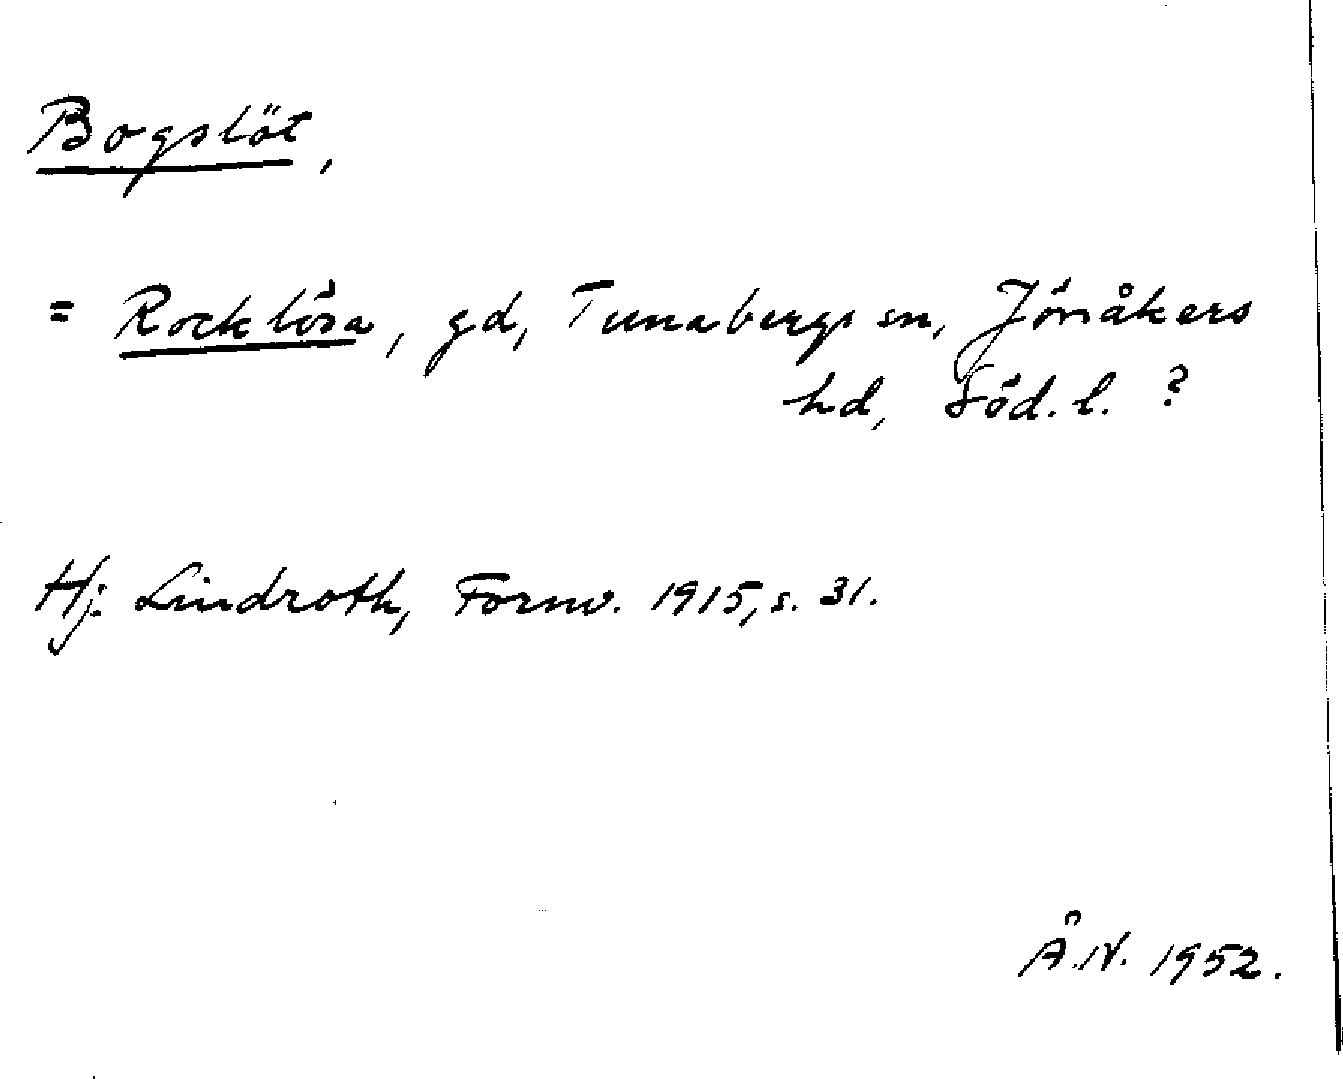 Bogslöt,
= Rocklösa, gd, Tunabergs sn, Jönåkers
hd, Söd. l. ?
Hj. Lindroth, Fornv. 1915, s. 31.
Å.N. 1952.